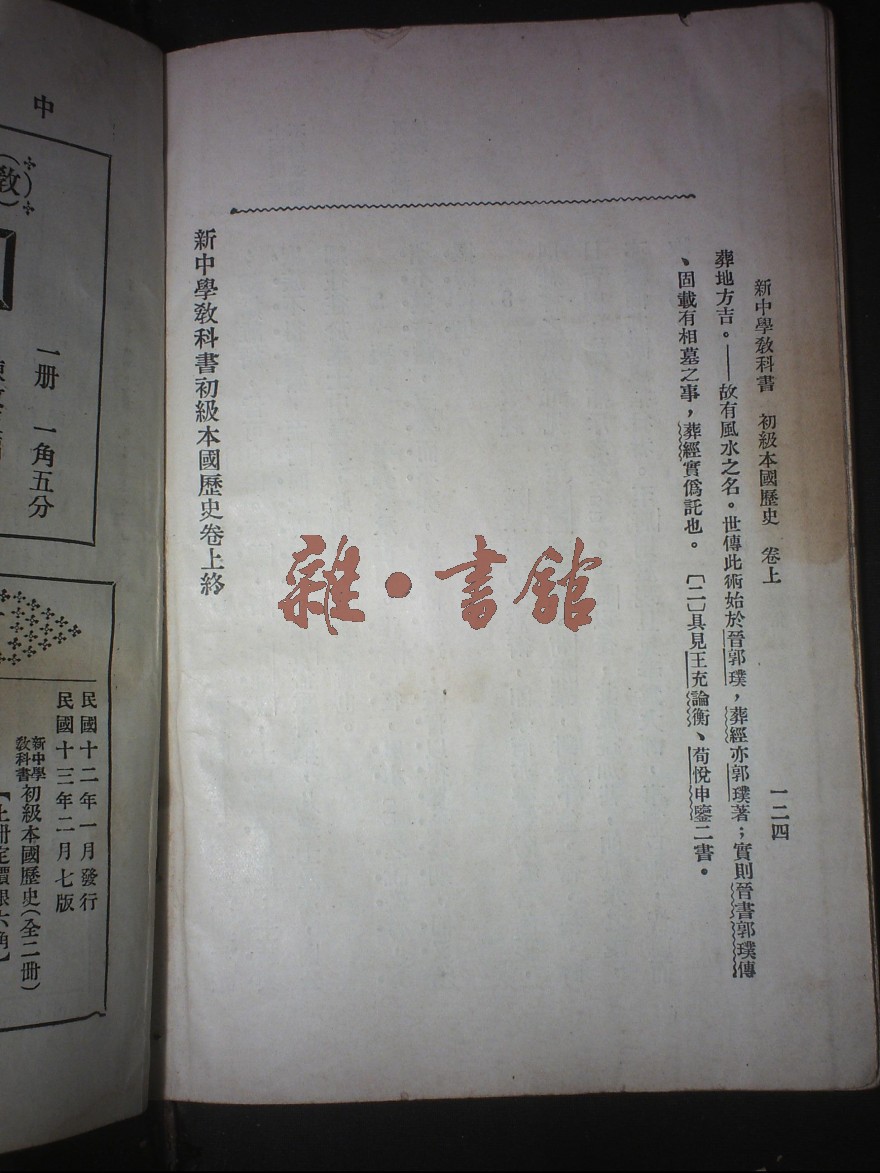 新中學教科書 初級本國歷史 卷上
一二四
葬地方吉。——故有風水之名。世傳此術始於晉郭璞，葬經亦郭璞著；實則晉書郭璞傳
、固載有相墓之事，葬經實僞託也。〔二〕具見王充論衡、荀悅申鑒二書。
新中學教科書初級本國歷史卷上終
雜·書館
中
教
一册 一角五分
民國十二年一月發行
民國十三年二月七版
新中學
教科書
初級本國歷史(全二冊)